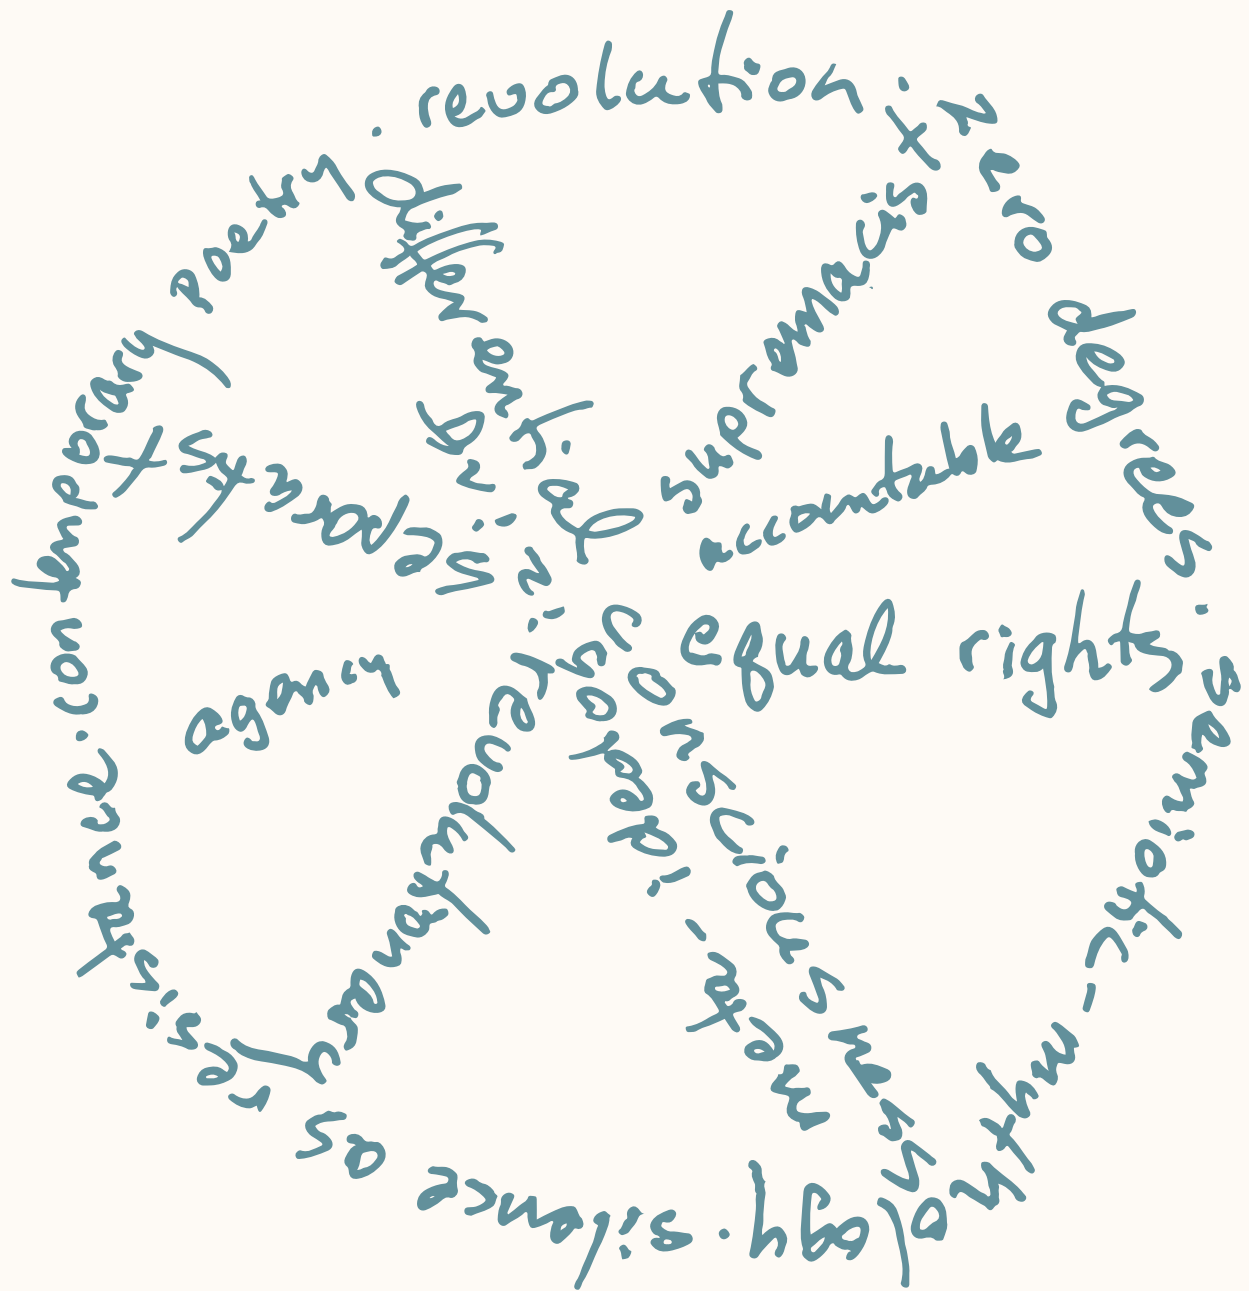 revolution.
zero degrees.
semiotic-mythology.
silence as resistance.
contemporary poetry.
differential
supremacist
accountable
equal rights
consciousness
meta-ideologizing
revolutionary
agency
separatist